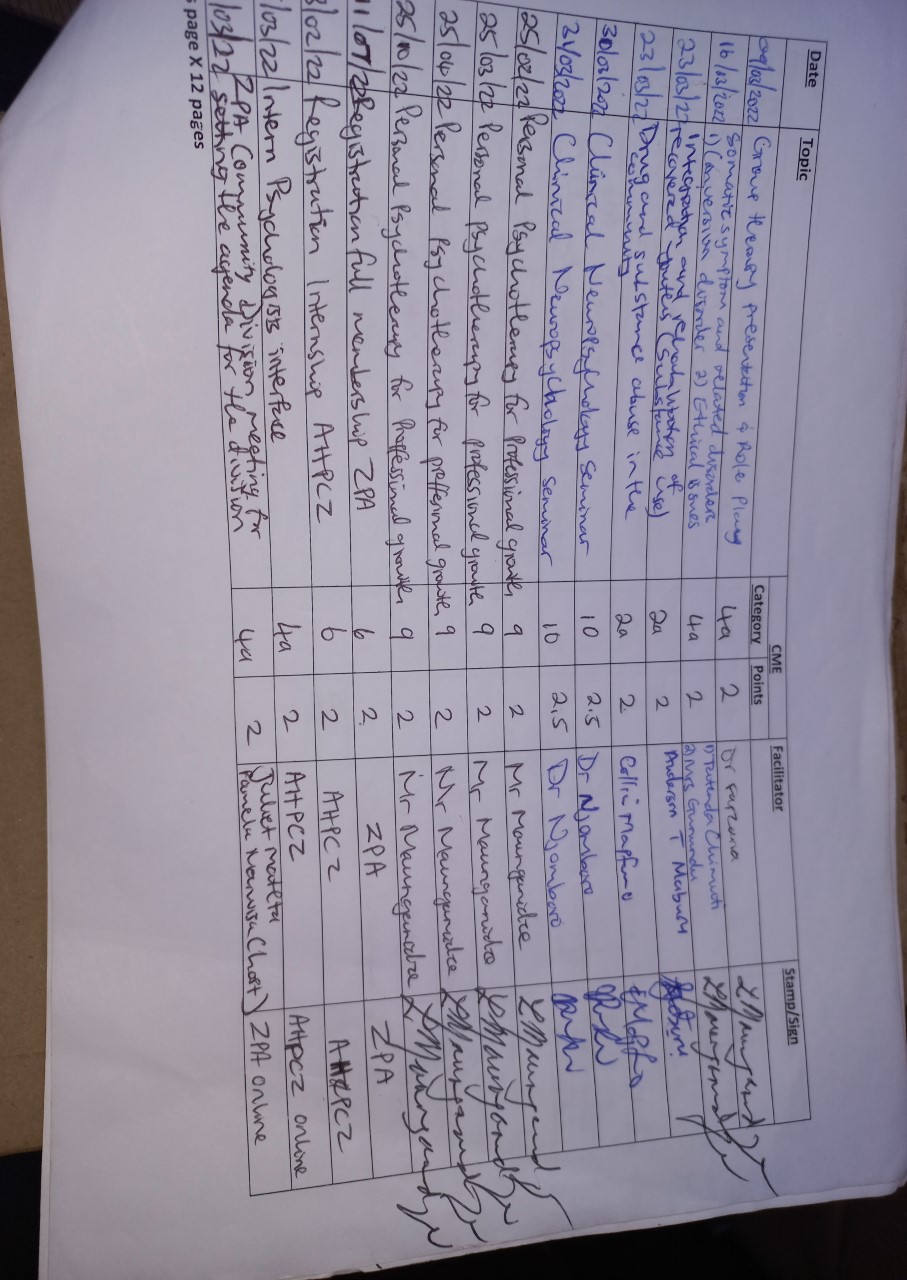 Date Topic CME Facilitator Stamp/Sign
Category Points
09/03/2022 Group theory presentation & Role Playing 4a 2 Dr Farzana
16/03/2022 Somatic symptom and related disorders
1) Conversion disorder 2) Ethical issues 4a 2 1) Tatenda Chimuti
2) Mrs Gumindu
23/03/22 Integration and rehabilitation of
recovered youtes (substance use) 2a 2 Anderson T
23/03/22 Drug and substance abuse in the
community 2a 2 Collin Mapfumo
30/03/202 Clinical Neuropsychology Seminar 10 2.5 Dr Njomboro
31/03/2022 Clinical Neuropsychology seminar 10 2.5 Dr Njomboro
25/02/22 Personal Psychotherapy for Professional growth 9 2 Mr Maunganidze
25/03/22 Personal Psychotherapy for professional growth 9 2 Mr Maunganidze
25/04/22 Personal Psychotherapy for proffesional growth 9 2 Mr Maunganidze
25/10/22 Personal Psychotherapy for Proffessional growth 9 2 Mr Maunganidze
11/07/22 Registration full membership ZPA 6 2 ZPA ZPA
/02/22 Registration Internship AHPCZ 6 2 AHPCZ AHPCZ
/03/22 Intern Psychologists interface 4a 2 AHPCZ AHPCZ online
/03/22 ZPA Community division meeting for
setting the agenda for the division 4a 2 Juliet Mateta
Pamela (host) ZPA online
page X 12 pages